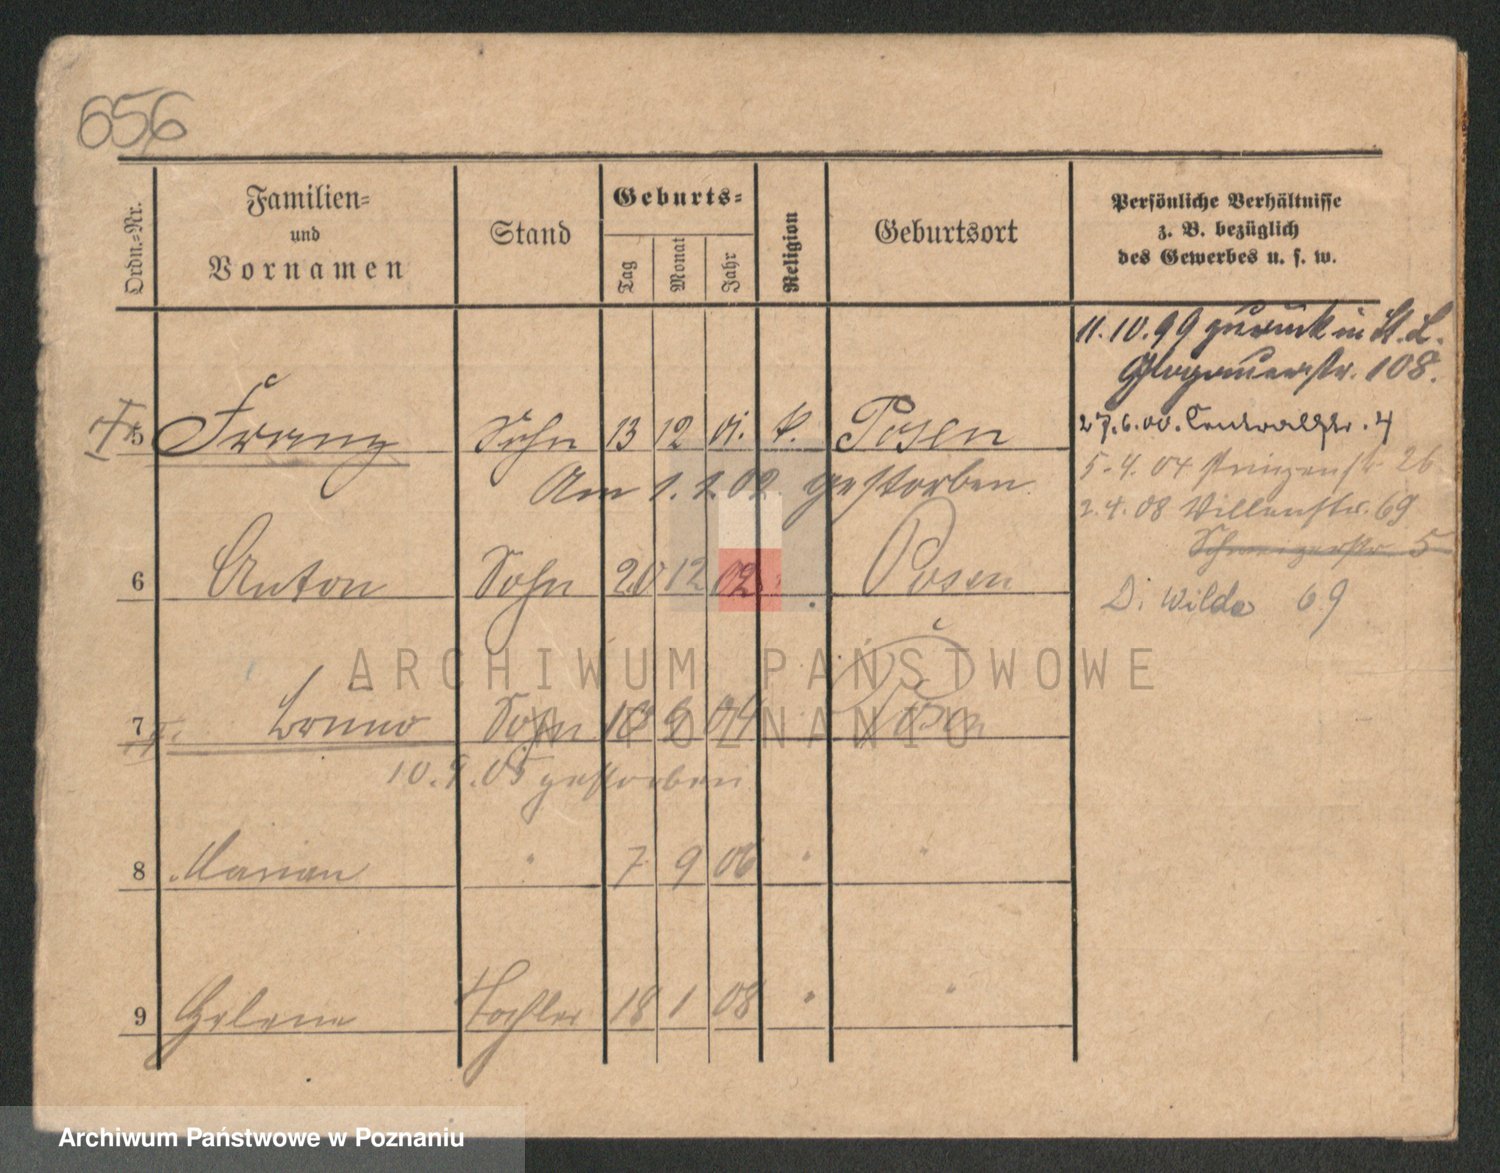 656
Ordn.=Nr.
Familien=
und
Vornamen
Stand
Geburts=
Tag
Monat
Jahr
Religion
Geburtsort
Persönliche Verhältnisse
z. B. bezüglich
des Gewerbes u. s. w.
11.10.99 zurück in St. L.
Glogauerstr. 108.
5 Franz Sohn 13 12 01. k. Posen
27.6.00. Centralstr. 4
Am 1. 1. 02 gestorben.
5.4.04 Prinzenstr 26
2.4.08 Villenstr. 69
6 Anton Sohn 20 12 02 Posen
5
D. Wilda 69
7 Bruno Sohn 18 04 Posen
10. 9. 05 gestorben
8 Marian " 7 9 06 " "
9 Helene Tochter 18 1 08 " "
ARCHIWUM PAŃSTWOWE
W POZNANIU
Archiwum Państwowe w Poznaniu